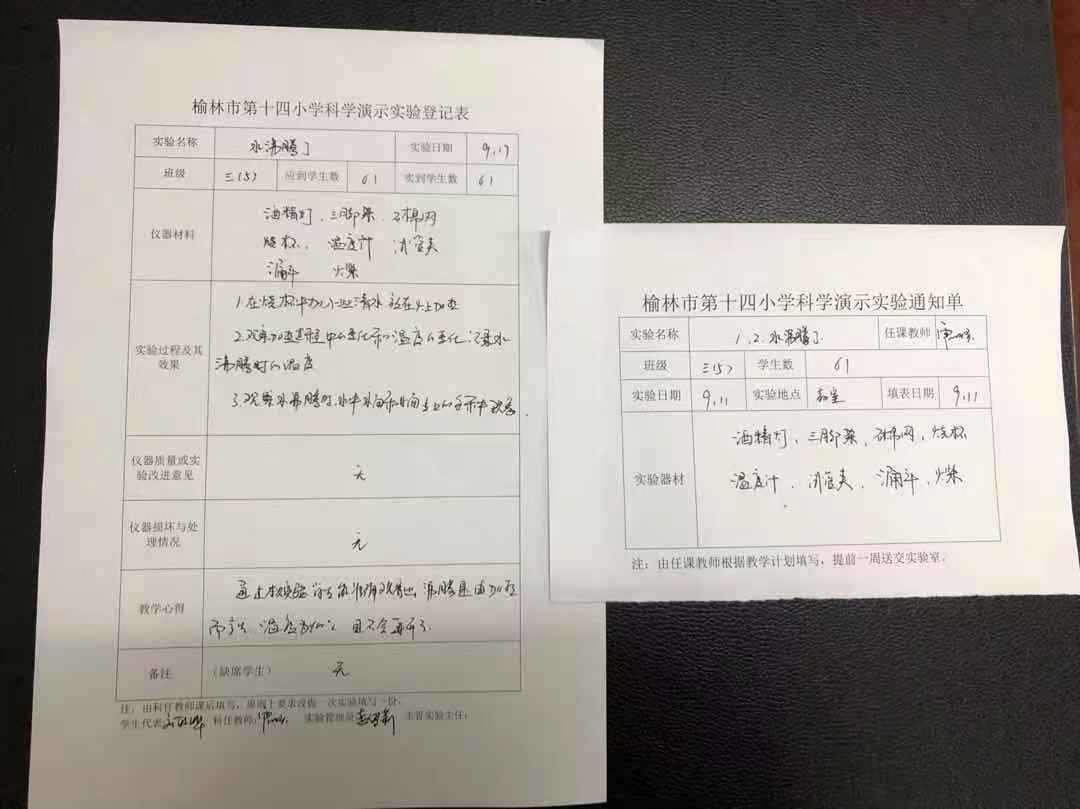 榆林市第十四小学科学演示实验登记表
实验名称 水沸腾了 实验日期 9.17
班级 三(5) 应到学生数 61 实到学生数 61
仪器材料
酒精灯、三脚架、石棉网
烧杯、温度计 试管夹
漏斗 火柴
实验过程及其
效果
1.在烧杯中加入一些清水 放在火上加热
2.观察加热过程中的变化和温度的变化,记录水
沸腾时的温度
3.观察水沸腾时,水中
仪器质量或实
验改进意见
无
仪器损坏与处
理情况
无
教学心得
通过本实验 学生能准确观察出,沸腾是由加热
而 温度 且不会再升了.
备注 (缺席学生) 无
注:由科任教师课后填写,原则上要求没做一次实验填写一份。
学生代表: 科任教师: 实验管理员: 主管实验主任:
榆林市第十四小学科学演示实验通知单
实验名称 1.2.水沸腾了. 任课教师
班级 三(5) 学生数 61
实验日期 9.11 实验地点 教室 填表日期 9.11
实验器材
酒精灯、三脚架、石棉网、烧杯
温度计、试管夹、漏斗、火柴
注:由任课教师根据教学计划填写,提前一周送交实验室。